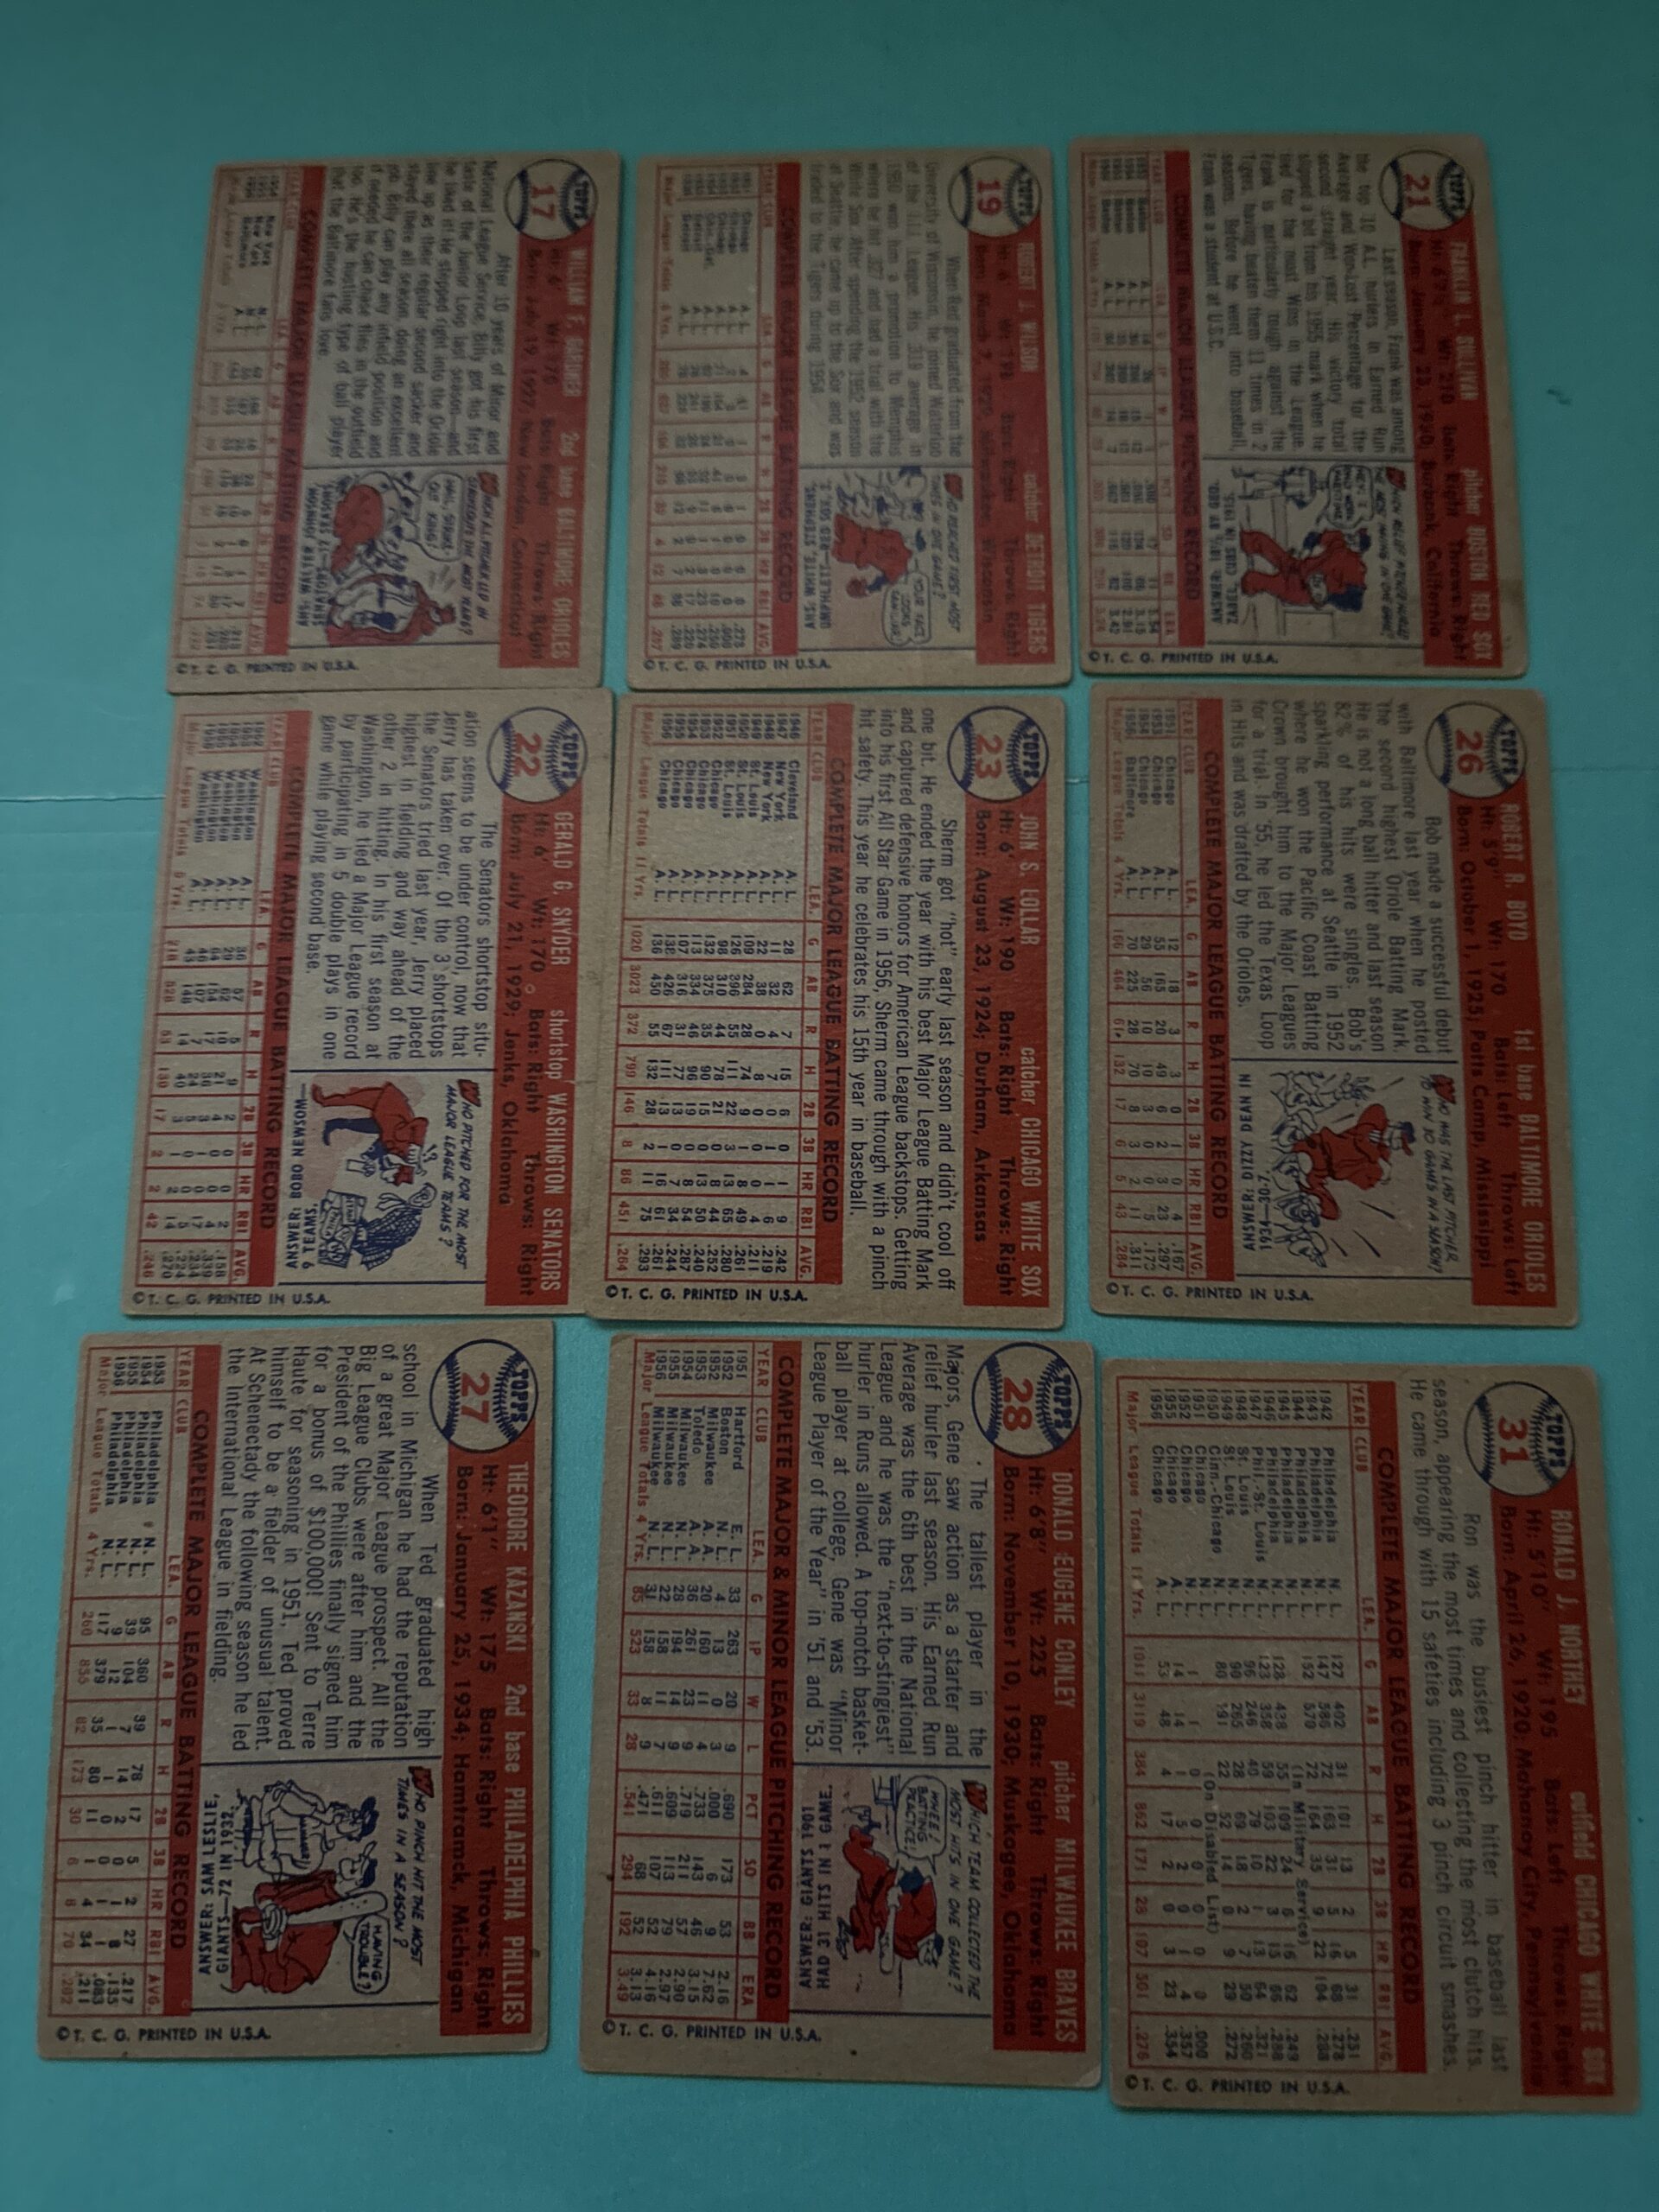 TOPPS
17
WILLIAM F. GARDNER 2nd base BALTIMORE ORIOLES
Ht: 6' Wt: 175 Bats: Right Throws: Right
Born: July 19, 1927; New London, Connecticut
After 10 years of Minor and
National League Service, Billy got his first
taste of the Junior Loop last season—and
he liked it! He stepped right into the Oriole
line up as their regular second sacker and
stayed there all season, doing an excellent
job. Billy can play any infield position and
if needed he can chase flies in the outfield
too. He's the hustling type of ball player
that the Baltimore fans love.
WHEN A PITCHER LED IN
STRIKEOUTS THE MOST YEARS?
HAIL, STRIKE-
OUT KING!
ANS: WALTER JOHNSON,
SENATORS—12 SEASONS
COMPLETE MAJOR LEAGUE BATTING RECORD
YEAR CLUB LEA. G AB R H 2B 3B HR RBI AVG.
New York N. L.
New York N. L.
Baltimore A. L.
Major League Totals 3 Yrs.
© T. C. G. PRINTED IN U.S.A.
TOPPS
19
ROBERT J. WILSON catcher DETROIT TIGERS
Ht: 6' Bats: Right Throws: Right
Born: March 7, 1929; Milwaukee, Wisconsin
When Red graduated from the
University of Wisconsin, he joined Waterloo
of the I.I.I. League. His .319 average in
1950 won him a promotion to Memphis
where he hit and had a trial with the
White Sox. After spending the 1952 season
at Seattle, he came up to the Sox and was
traded to the Tigers during 1954.
WHO REACHED FIRST MOST
TIMES IN ONE GAME?
YOUR FACE
LOOKS
FAMILIAR!
ANS: WHITE, STEPHENS,
UMPHLETT—RED SOX, 3.
COMPLETE MAJOR LEAGUE BATTING RECORD
YEAR CLUB LEA. G AB R H 2B 3B HR RBI AVG.
Chicago A. L.
Chicago A. L.
Chicago A. L.
Chi.-Det. A. L.
Detroit A. L.
Detroit A. L.
Major League Totals 6 Yrs.
© T. C. G. PRINTED IN U.S.A.
TOPPS
21
FRANKLIN L. SULLIVAN pitcher BOSTON RED SOX
Bats: Right Throws: Right
Born: January 23, 1930; Burbank, California
Last season, Frank was among
the top 10 A.L. hurlers in Earned Run
Average and Won-Lost Percentage for the
second straight year. His victory total
slipped a bit from his 1955 mark when he
tied for the most Wins in the League.
Frank is particularly rough against the
Tigers, having beaten them 11 times in 2
seasons. Before he went into baseball,
Frank was a student at U.S.C.
WHICH RELIEF PITCHER HURLED
THE MOST INNINGS IN ONE GAME?
COMPLETE MAJOR LEAGUE PITCHING RECORD
YEAR CLUB LEA. G IP W L PCT SO BB ERA
1953 Boston A. L.
1954 Boston A. L.
1955 Boston A. L.
1956 Boston A. L.
Major League Totals 4 Yrs.
© T. C. G. PRINTED IN U.S.A.
TOPPS
22
GERALD G. SNYDER shortstop WASHINGTON SENATORS
Ht: 6' Wt: 170 Bats: Right Throws: Right
Born: July 21, 1929; Jenks, Oklahoma
The Senators shortstop situ-
ation seems to be under control, now that
Jerry has taken over. Of the 3 shortstops
the Senators tried last year, Jerry placed
highest in fielding and way ahead of the
other 2 in hitting. In his first season at
Washington, he tied a Major League record
by participating in 5 double plays in one
game while playing second base.
WHO PITCHED FOR THE MOST
MAJOR LEAGUE TEAMS?
ANSWER: BOBO NEWSOM—
9 TEAMS.
COMPLETE MAJOR LEAGUE BATTING RECORD
YEAR CLUB LEA. G AB R H 2B 3B HR RBI AVG.
1952 Washington A. L. 36 57 5 9 2 0 0 2 .158
1953 Washington A. L. 29 62 10 21 4 0 0 4 .339
1954 Washington A. L. 64 154 17 36 3 1 0 17 .234
1955 Washington A. L. 46 107 7 24 5 0 0 5 .224
1956 Washington A. L. 43 148 14 40 3 1 2 14 .270
Major League Totals 5 Yrs. 218 528 53 130 17 2 2 42 .246
© T. C. G. PRINTED IN U.S.A.
TOPPS
23
JOHN S. LOLLAR catcher CHICAGO WHITE SOX
Ht: 6' Wt: 190 Bats: Right Throws: Right
Born: August 23, 1924; Durham, Arkansas
Sherm got "hot" early last season and didn't cool off
one bit. He ended the year with his best Major League Batting Mark
and captured defensive honors for American League backstops. Getting
into his first All Star Game in 1956, Sherm came through with a pinch
hit safety. This year he celebrates his 15th year in baseball.
COMPLETE MAJOR LEAGUE BATTING RECORD
YEAR CLUB LEA. G AB R H 2B 3B HR RBI AVG.
1946 Cleveland A. L. 28 62 7 15 6 0 1 9 .242
1947 New York A. L. 11 32 4 7 0 1 1 6 .219
1948 New York A. L. 22 38 0 8 0 0 0 4 .211
1949 St. Louis A. L. 109 284 28 74 9 1 8 49 .261
1950 St. Louis A. L. 126 396 55 111 22 3 13 65 .280
1951 St. Louis A. L. 98 310 44 78 21 0 8 44 .252
1952 Chicago A. L. 132 375 35 90 15 0 13 50 .240
1953 Chicago A. L. 113 334 46 96 19 0 8 54 .287
1954 Chicago A. L. 107 316 31 77 13 0 7 34 .244
1955 Chicago A. L. 138 426 67 111 13 1 16 61 .261
1956 Chicago A. L. 136 450 55 132 28 2 11 75 .293
Major League Totals 11 Yrs. 1020 3023 372 799 146 8 86 451 .264
© T. C. G. PRINTED IN U.S.A.
TOPPS
26
ROBERT R. BOYD 1st base BALTIMORE ORIOLES
Ht: 5'9" Wt: 170 Bats: Left Throws: Left
Born: October 1, 1925; Potts Camp, Mississippi
Bob made a successful debut
with Baltimore last year when he posted
the second highest Oriole Batting Mark.
He is not a long ball hitter and last season
82% of his hits were singles. Bob's
sparkling performance at Seattle in 1952
where he won the Pacific Coast Batting
Crown brought him to the Major Leagues
for a trial. In '55, he led the Texas Loop
in Hits and was drafted by the Orioles.
WHO WAS THE LAST PITCHER
TO WIN 30 GAMES IN A SEASON?
ANSWER: DIZZY DEAN IN
1934—30-7.
COMPLETE MAJOR LEAGUE BATTING RECORD
YEAR CLUB LEA. G AB R H 2B 3B HR RBI AVG.
1951 Chicago A. L. 12 18 3 3 0 1 0 4 .167
1953 Chicago A. L. 55 165 20 49 6 2 3 23 .297
1954 Chicago A. L. 29 56 10 10 3 0 0 5 .179
1956 Baltimore A. L. 70 225 28 70 8 3 2 11 .311
Major League Totals 4 Yrs. 166 464 61 132 17 6 5 43 .284
© T. C. G. PRINTED IN U.S.A.
TOPPS
27
THEODORE KAZANSKI 2nd base PHILADELPHIA PHILLIES
Ht: 6'1" Wt: 175 Bats: Right Throws: Right
Born: January 25, 1934; Hamtramck, Michigan
When Ted graduated high
school in Michigan he had the reputation
of a great Major League prospect. All the
Big League Clubs were after him and the
President of the Phillies finally signed him
for a bonus of $100,000! Sent to Terre
Haute for seasoning in 1951, Ted proved
himself to be a fielder of unusual talent.
At Schenectady the following season he led
the International League in fielding.
WHO PINCH HIT THE MOST
TIMES IN A SEASON?
HAVING
TROUBLE?
ANSWER: SAM LESLIE,
GIANTS—72 IN 1932.
COMPLETE MAJOR LEAGUE BATTING RECORD
YEAR CLUB LEA. G AB R H 2B 3B HR RBI AVG.
1953 Philadelphia N. L. 95 360 39 78 17 5 2 27 .217
1954 Philadelphia N. L. 39 104 7 14 2 0 1 8 .135
1955 Philadelphia N. L. 9 12 1 1 0 0 1 1 .083
1956 Philadelphia N. L. 117 379 35 80 11 1 4 34 .211
Major League Totals 4 Yrs. 260 855 82 173 30 6 8 70 .202
© T. C. G. PRINTED IN U.S.A.
TOPPS
28
DONALD EUGENE CONLEY pitcher MILWAUKEE BRAVES
Ht: 6'8" Wt: 225 Bats: Right Throws: Right
Born: November 10, 1930; Muskogee, Oklahoma
The tallest player in the
Majors, Gene saw action as a starter and
relief hurler last season. His Earned Run
Average was the 6th best in the National
League and he was the "next-to-stingiest"
hurler in Runs allowed. A top-notch basket-
ball player at college, Gene was "Minor
League Player of the Year" in '51 and '53.
WHICH TEAM COLLECTED THE
MOST HITS IN ONE GAME?
WHEE!
BATTING
PRACTICE!
ANSWER: GIANTS 1901
HAD 31 HITS IN 1 GAME.
COMPLETE MAJOR & MINOR LEAGUE PITCHING RECORD
YEAR CLUB LEA. G IP W L PCT SO BB ERA
1951 Hartford E. L. 33 263 20 9 .690 173 53 2.16
1952 Boston N. L. 4 13 0 3 .000 6 9 7.62
1952 Milwaukee A. A. 20 160 11 4 .733 143 46 3.15
1953 Toledo A. A. 36 261 23 9 .719 211 57 2.90
1954 Milwaukee N. L. 28 194 14 9 .609 113 79 2.97
1955 Milwaukee N. L. 22 158 11 7 .611 107 52 4.16
1956 Milwaukee N. L. 31 158 8 9 .471 68 52 3.13
Major League Totals 4 Yrs. 85 523 33 28 .541 294 192 3.49
© T. C. G. PRINTED IN U.S.A.
TOPPS
31
RONALD J. NORTHEY outfield CHICAGO WHITE SOX
Ht: 5'10" Wt: 195 Bats: Left Throws: Right
Born: April 26, 1920; Mahanoy City, Pennsylvania
Ron was the busiest pinch hitter in baseball last
season, appearing the most times and collecting the most clutch hits.
He came through with 15 safeties including 3 pinch circuit smashes.
COMPLETE MAJOR LEAGUE BATTING RECORD
YEAR CLUB LEA. G AB R H 2B 3B HR RBI AVG.
1942 Philadelphia N. L. 127 402 31 101 13 2 5 31 .251
1943 Philadelphia N. L. 147 586 72 163 31 5 16 68 .278
1944 Philadelphia N. L. 152 570 72 164 35 9 22 104 .288
1945 Philadelphia N. L. (In Military Service)
1946 Philadelphia N. L. 128 438 55 109 24 6 16 62 .249
1947 Phil.-St. Louis N. L. 123 358 59 103 22 3 15 66 .288
1948 St. Louis N. L. 96 246 40 79 10 1 13 64 .321
1949 St. Louis N. L. 90 265 28 69 18 2 7 50 .260
1950 Cinn.-Chicago N. L. 80 191 22 52 14 0 9 29 .272
1951 Chicago N. L. (On Disabled List)
1952 Chicago N. L. 1 1 0 0 0 0 0 0 .000
1955 Chicago A. L. 14 14 1 5 2 0 1 4 .357
1956 Chicago A. L. 53 48 4 17 2 0 3 23 .354
Major League Totals 11 Yrs. 1011 3119 384 862 171 28 107 501 .276
© T. C. G. PRINTED IN U.S.A.